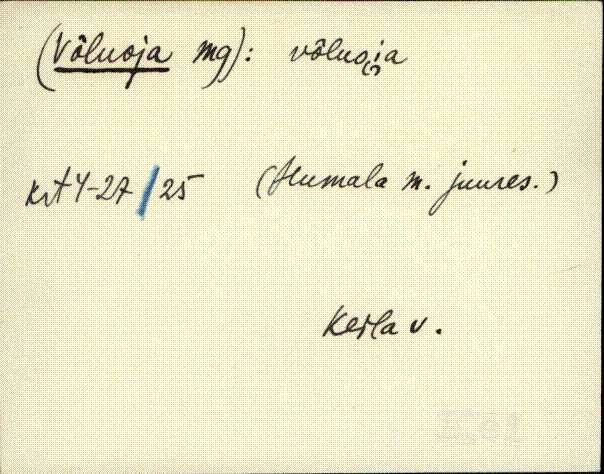 (Võluoja mg): võluoja
krt 4-27/25 (Humala m. juures.)
Keila v.